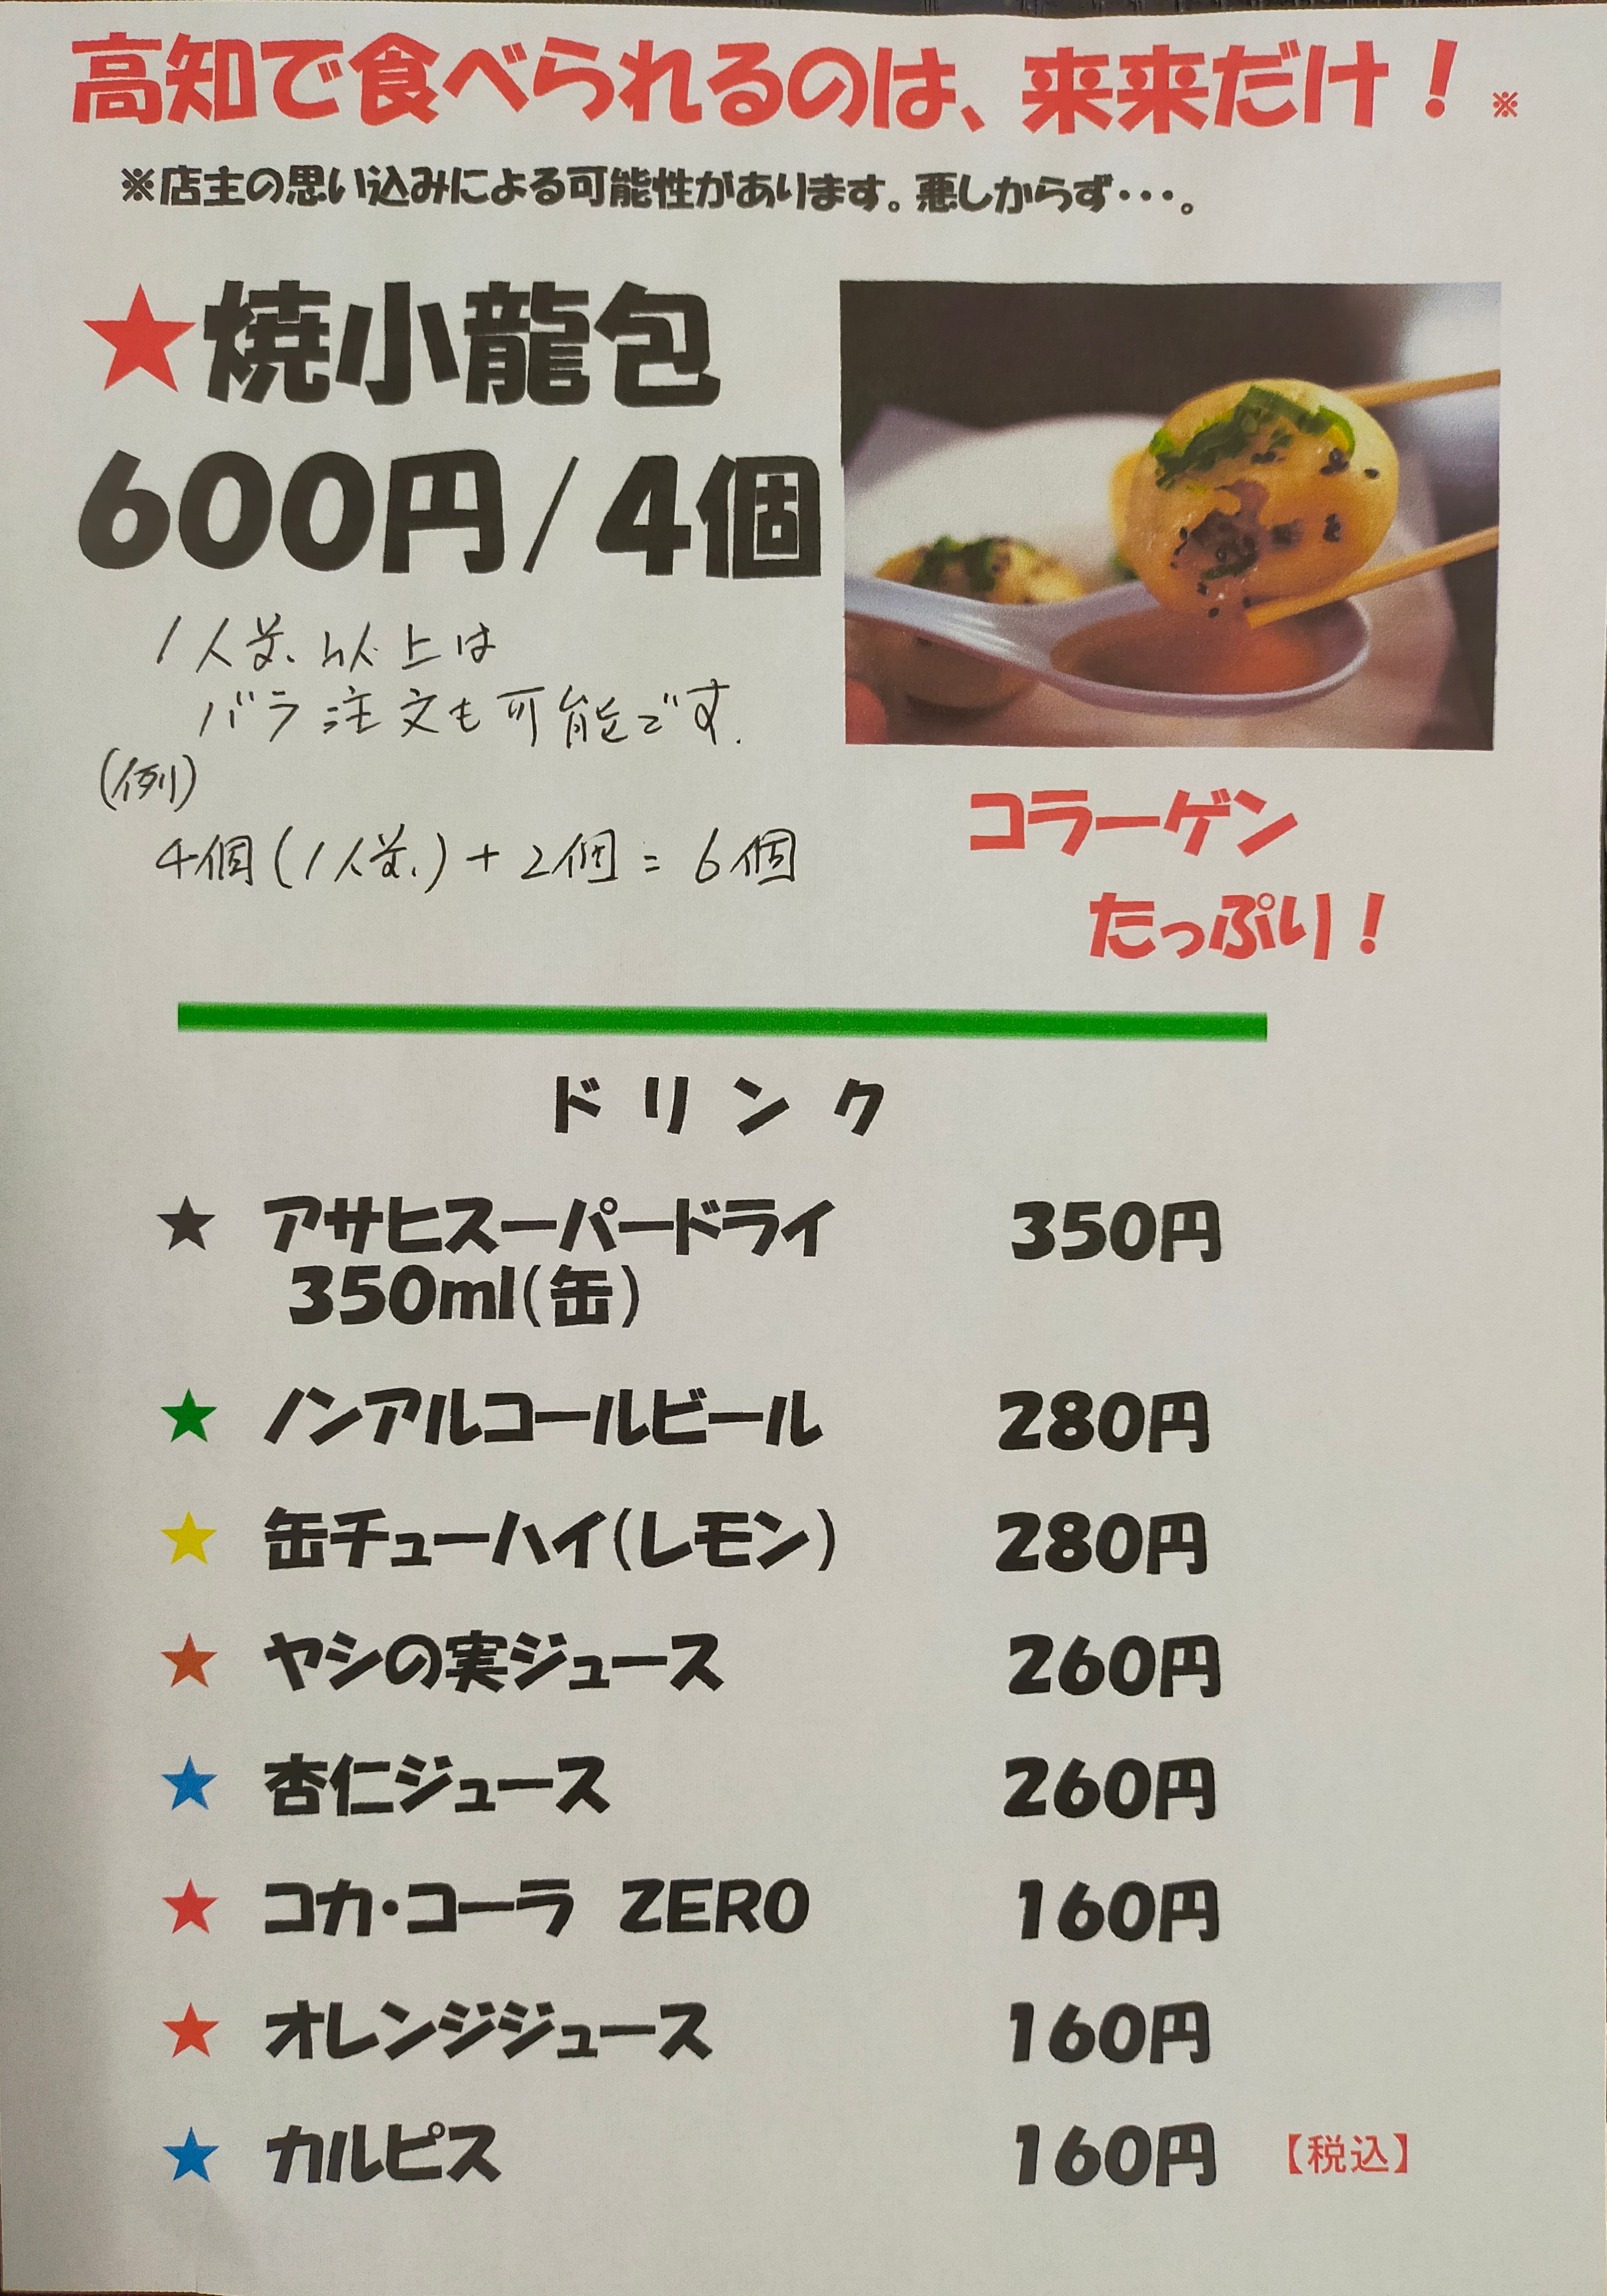 高知で食べられるのは、来来だけ！※
※店主の思い込みによる可能性があります。悪しからず・・・。
★焼小龍包
600円/4個
1人前以上は
バラ注文も可能です.
(例)
4個(1人前)+2個=6個
コラーゲン
たっぷり！
ドリンク
★ アサヒスーパードライ 350円
350ml(缶)
★ ノンアルコールビール 280円
★ 缶チューハイ(レモン) 280円
★ ヤシの実ジュース 260円
★ 杏仁ジュース 260円
★ コカ・コーラ ZERO 160円
★ オレンジジュース 160円
★ カルピス 160円 【税込】